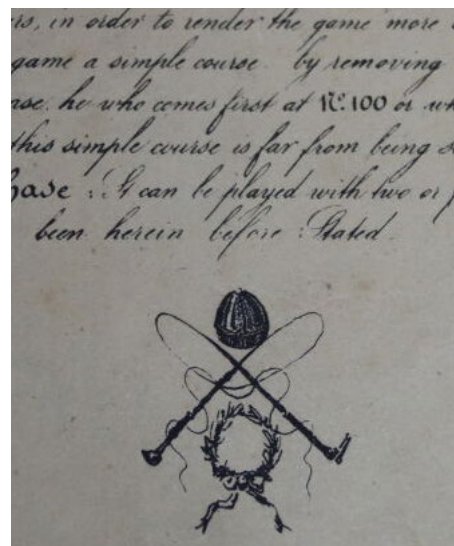 rs, in order to render the game more
game a simple course by removing
ase. he who comes first at Nº. 100 or wh
this simple course is far from being s
hase : It can be played with two or
been herein before : Stated.